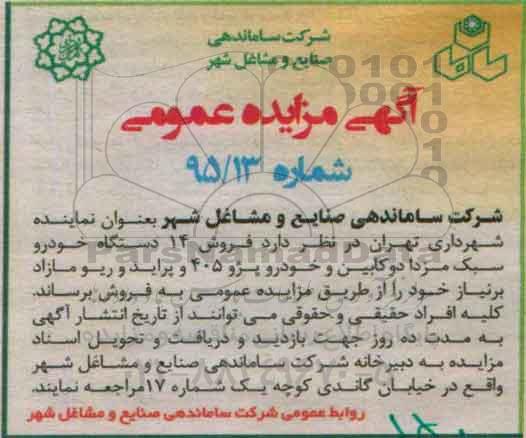 شرکت ساماندهی
صنایع و مشاغل شهر
آگهی مزایده عمومی
شماره ۹۵/۱۳
شرکت ساماندهی صنایع و مشاغل شهر بعنوان نماینده
شهرداری تهران در نظر دارد فروش ۱۴ دستگاه خودرو
سبک مزدا دوکابین و خودرو پژو ۴۰۵ و پراید و ریو مازاد
برنیاز خود را از طریق مزایده عمومی به فروش برساند.
کلیه افراد حقیقی و حقوقی می توانند از تاریخ انتشار آگهی
به مدت ده روز جهت بازدید و دریافت و تحویل اسناد
مزایده به دبیرخانه شرکت ساماندهی صنایع و مشاغل شهر
واقع در خیابان گاندی کوچه یک شماره ۱۷مراجعه نمایند.
روابط عمومی شرکت ساماندهی صنایع و مشاغل شهر
ParsNamadData